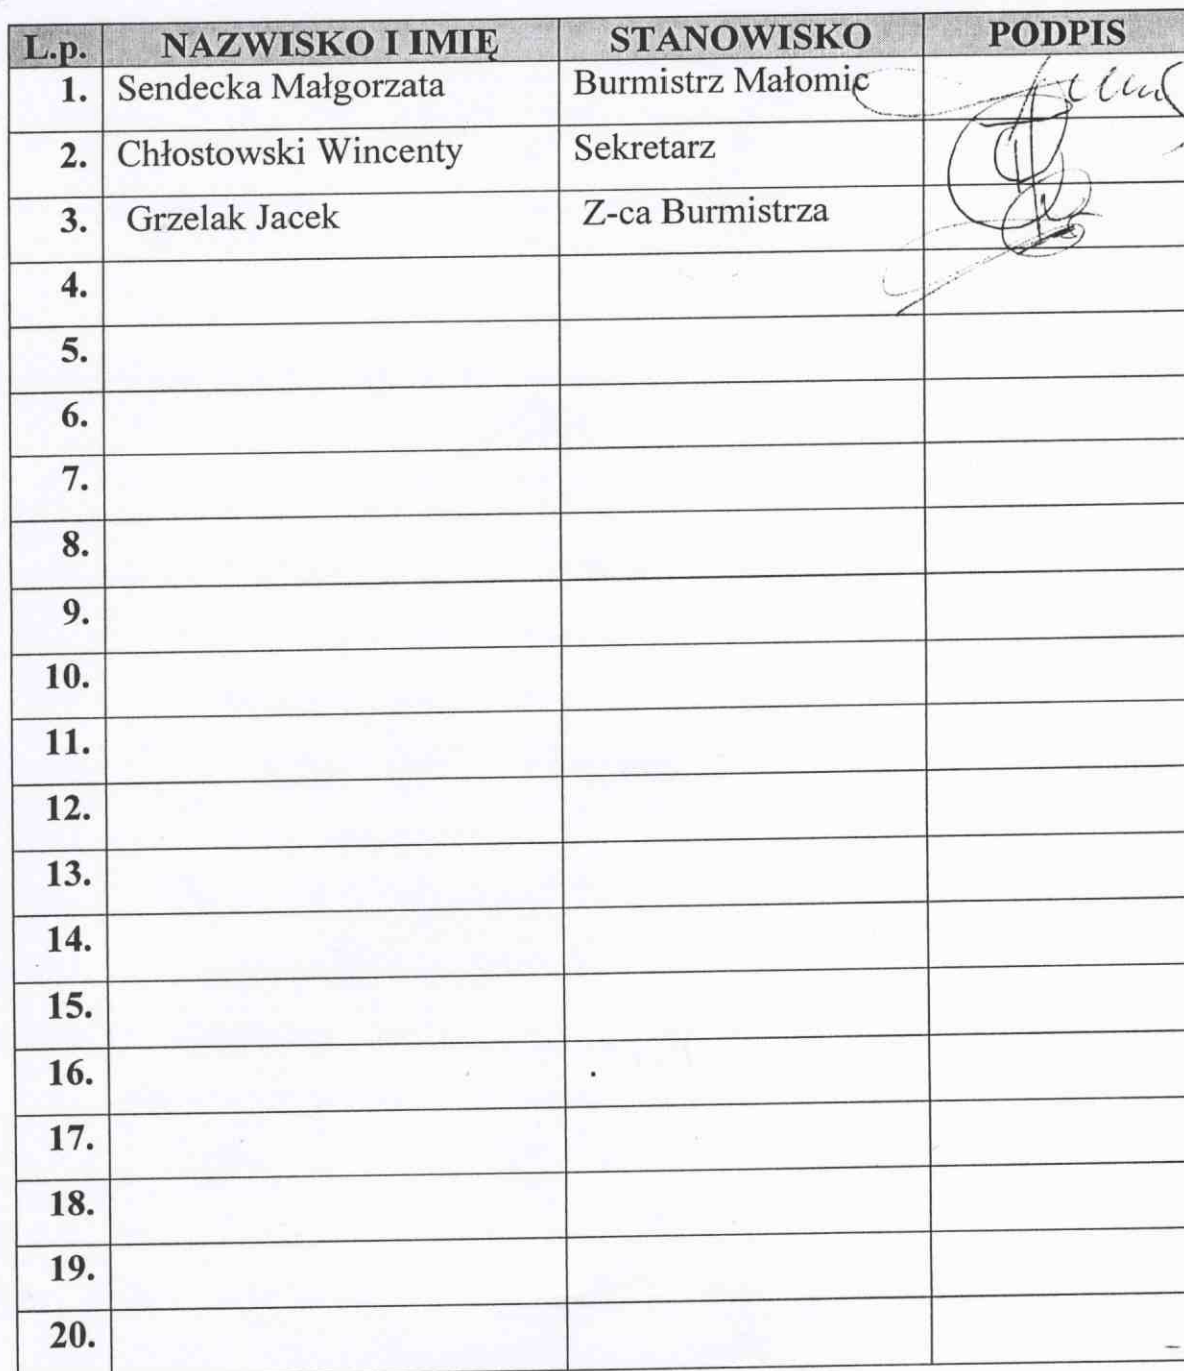 L.p. NAZWISKO I IMIĘ STANOWISKO PODPIS
1. Sendecka Małgorzata Burmistrz Małomic
2. Chłostowski Wincenty Sekretarz
3. Grzelak Jacek Z-ca Burmistrza
4.
5.
6.
7.
8.
9.
10.
11.
12.
13.
14.
15.
16.
17.
18.
19.
20.